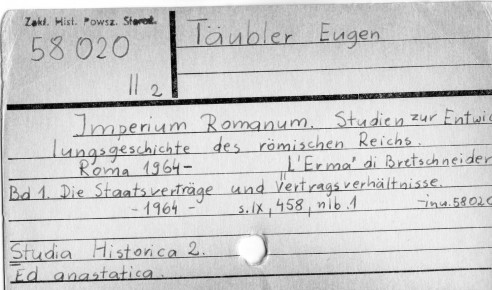 Zakł. Hist. Powsz. Staroż.
58 020
II 2
Täubler Eugen
Imperium Romanum. Studien zur Entwic
lungsgeschichte des römischen Reichs.
Roma 1964- L'Erma" di Bretschneider
Bd 1. Die Staatsverträge und Vertragsverhältnisse.
-1964- s. IX, 458, nlb. 1 -inw. 58020
Studia Historica 2.
Ed anastatica.